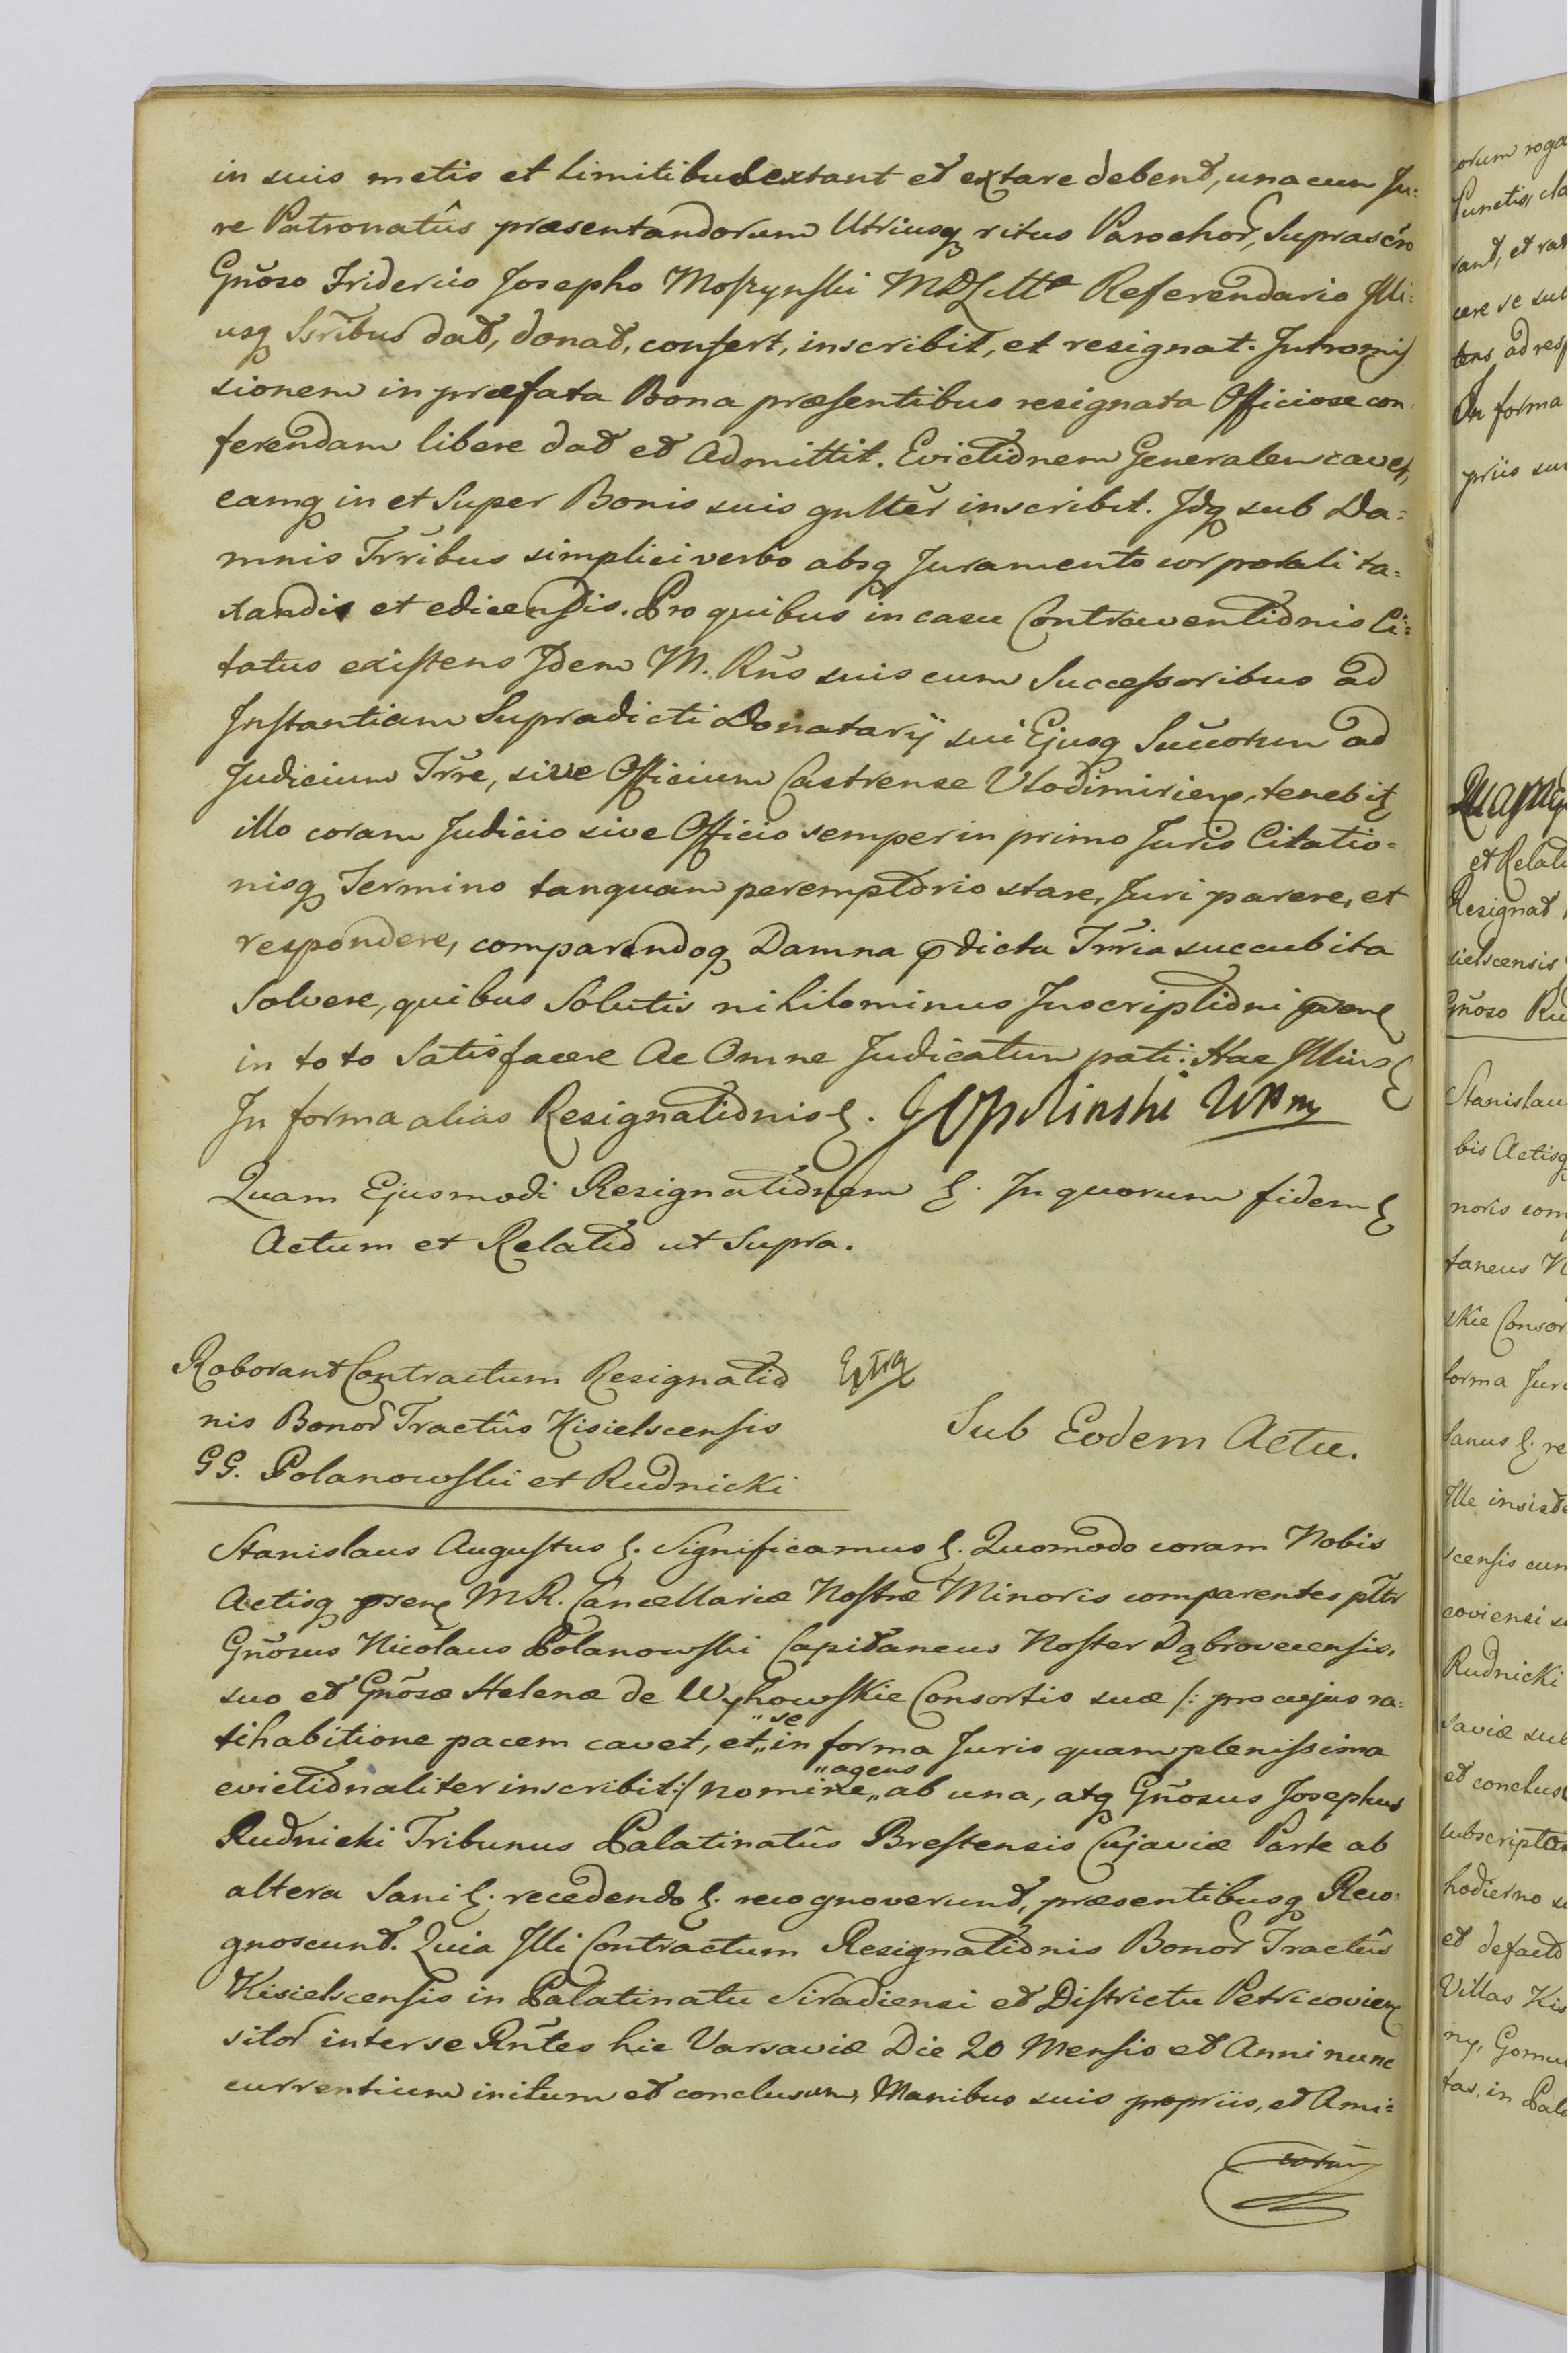 in suis metis et limitibus extant et extare debent, una cum Ju:
re Patronatûs præsentandorum Utriusq ritus Parochor, Suprascro
Gnoso Friderico Josepho Moszynski MDLitt Referendario Illi:
usq Ssribus dat, donat, confert, inscribit, et resignat. Intromis
sionem in præfata Bona præsentibus resignata Officiose con:
ferendam libere dat et Admittit. Evictionem Generalem cavet,
eamq in et Super Bonis suis gnlter inscribit. Idq sub Da=
mnis Trribus simplici verbo absq Juramento corporali ta=
xandis et edicendis. Pro quibus in casu Contraventionis Ci=
tatus existens Idem M. Rns suis cum Successoribus ad
Instantiam Supradicti Donatarij sui Ejusq Succorum ad
Judicium Trre, sive Officium Castrense Vlodimiriens, tenebit
illo coram Judicio sive Officio semper in primo Juris Citatio=
nisq Termino tanquam peremptorio stare, Juri parere, et
respondere, comparendoq Damna pdicta Trria succubita
Solvere, quibus Solutis nihilominus Inscriptioni psen
in toto Satisfacere Ac Omne Judicatum pati: Hac Illius
In forma alias Resignationis. JOpolinski WPmp
Quam Ejusmodi Resignationem. In quorum fidem
Actum et Relatio ut Supra.
Roborant Contractum Resignatio Extra
nis Bonor Tractûs Kisielscensis
GG. Polanowski et Rudnicki
Sub Eodem Actu.
Stanislaus Augustus. Significamus. Quomodo coram Nobis
Actisq psen M R. Cancellariæ Nostræ Minoris comparentes pltr
Gnosus Nicolaus Polanowski Capitaneus Noster Dąbrovecensis,
suo et Gnosæ Helenæ de Wyhowskie Consortis suæ /: pro cujus ra=
se
tihabitione pacem cavet, et„ in forma Juris quam plenissima
agens
evictionaliter inscribit:/ nomine„ ab una, atq Gnosus Josephus
Rudnicki Tribunus Palatinatûs Brestensis Cujaviæ Parte ab
altera Sani. recedendo. recognoverunt, præsentibusq Reco=
gnoscunt. Quia Illi Contractum Resignationis Bonor Tractûs
Kisielscensis in Palatinatu Siradiensi et Districtu Petricovien
sitor inter se Rntes hic Varsaviæ Die 20 Mensis et Anni nunc
currentium initum et conclusum, Manibus suis propriis, et Ami=
corum
orum roga
Punctis, cla
rant, et rat
cere se sub
tens, ad resp
In forma
priis su
et Relati
Resignat
sielscensis
Gnoso Ru
Stanislau
bis Actisq
noris com
taneus N
skie Consor
forma Juri
Sanus. re
Ille insisd
scensis cum
coviensi s
Rudnicki
saviæ sub
et conclus
subscripto
hodierno s
et defacto
Villas Kis
ny, Gomu
tas, in Pala